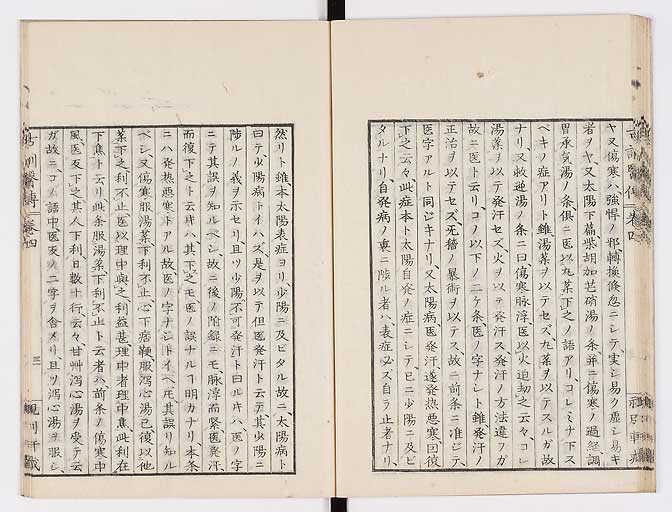 ヤ又傷寒ハ強悍ノ邪轉換倏忽ニシテ実シ易ク虚シ易キ
者ヲヤ又太陽下篇柴胡加芒硝湯ノ条并ニ傷寒ノ過経調
胃承気湯ノ条俱ニ医以丸薬下之ノ語アリコレミナ下ス
ベキノ症アリト雖湯薬ヲ以テセズ丸薬ヲ以テスルガ故
ナリ又救逆湯ノ条ニ曰傷寒脉浮医以火迫劫之云々コレ
湯薬ヲ以テ発汗セズ火ヲ以テ発汗ス発汗ノ方法違ヲガ
故ニ医ト云リコノ以下ノ二ケ条医ノ字ナシト雖発汗ノ
正治ヲ以テセズ死稽ノ暴術ヲ以テス故ニ前条ニ准ジテ
医字アルト同ジキナリ又太陽病医発汗遂発热悪寒因復
下之云々此症本ト太陽自発ノ症ニシテ已ニ少陽ニ及ビ
タルナリ自発病ノ裏ニ陟ル者ハ表症必ズ自ラ止者ナリ
然リト雖本太陽表症ヨリ少陽ニ及ビタル故ニ太陽病ト
曰テ少陽病トイハズ是ヲ以テ但医発汗ト云テ其少陽ニ
陟ルノ義ヲ示セリ且ツ少陽不可発汗ト曰ルキハ医ノ字
ニテ其誤ヲ知ルベシ故ニ後ノ附録ニモ脉浮而緊医発汗
而復下之ト云キハ其下之モ医ノ誤ナルコ明カナリ本条
ニハ発热悪寒トアル故医ノ字ナシトイヘ𪜈其誤リ知ル
ベシ又傷寒服湯薬下利不止心下痞鞕服瀉心湯已復以他
薬下之利不止医以理中與之利益甚理中者理中焦此利在
下焦ト云リ此条服湯薬下利不止ト云者ハ前条ノ傷寒中
風医反下之其人下利日数十行云々甘艸瀉心湯ヲ受テ云
ガ故ニコノ語中医反ノ二字ヲ含メリ且ツ瀉心湯ヲ服シ